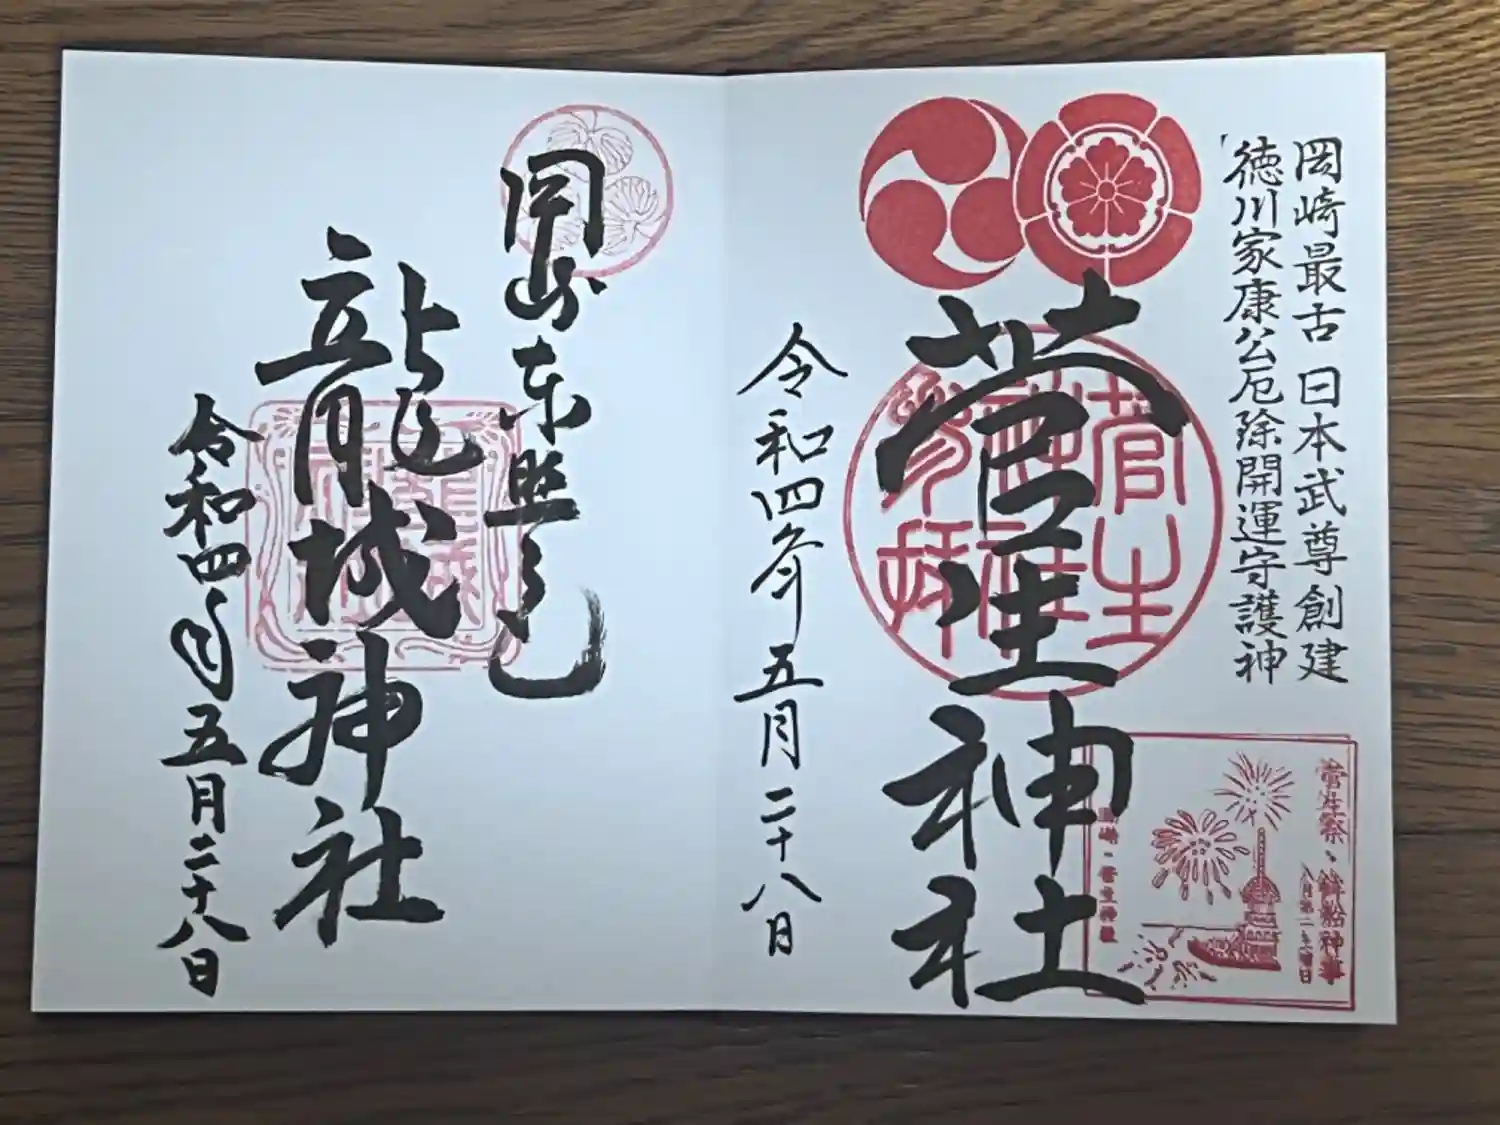 岡崎最古 日本武尊創建
徳川家康公厄除開運守護神
菅生神社
菅生神社
令和四年五月二十八日
菅生祭・鉾船神事
岡崎・菅生神社
岡崎東照宮
龍城神社
令和四年五月二十八日